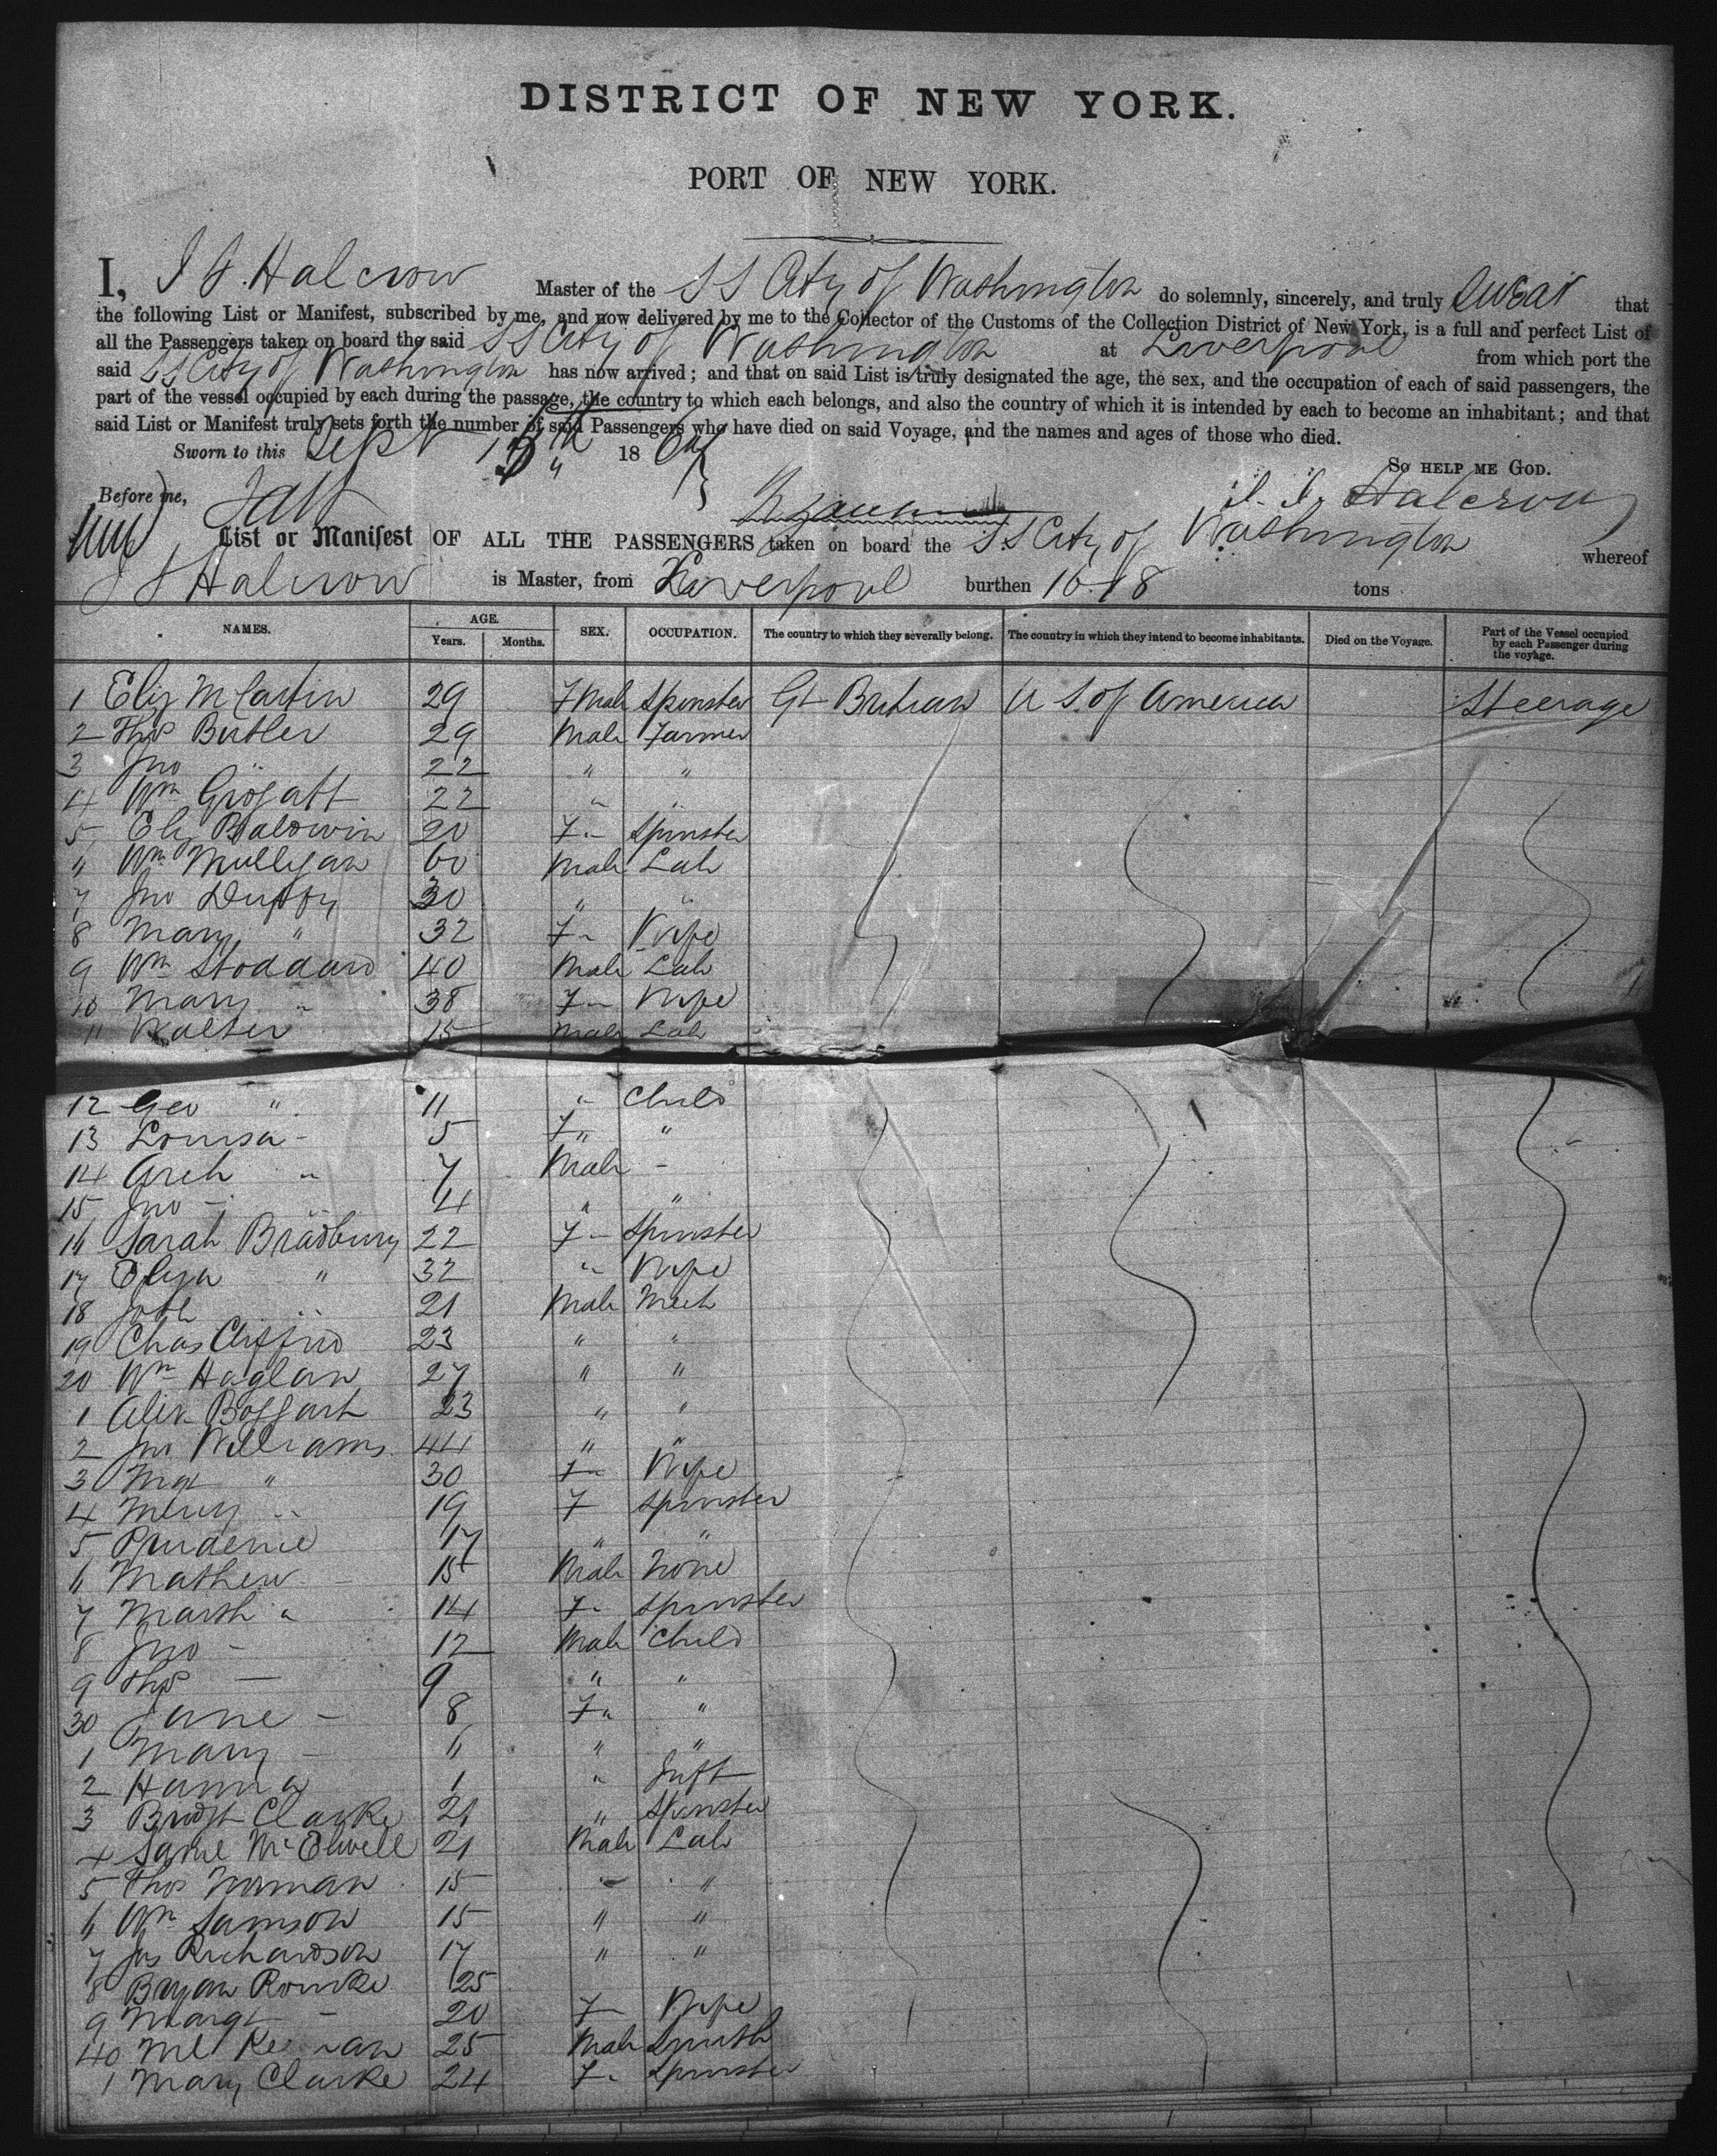 DISTRICT OF NEW YORK.
PORT OF NEW YORK.
I, J S. Halcrow Master of the S S City of Washington do solemnly, sincerely, and truly swear that
the following List or Manifest, subscribed by me, and now delivered by me to the Collector of the Customs of the Collection District of New York, is a full and perfect List of
all the Passengers taken on board the said S S City of Washington at Liverpool from which port the
said S S City of Washington has now arrived; and that on said List is truly designated the age, the sex, and the occupation of each of said passengers, the
part of the vessel occupied by each during the passage, the country to which each belongs, and also the country of which it is intended by each to become an inhabitant; and that
said List or Manifest truly sets forth the number of said Passengers who have died on said Voyage, and the names and ages of those who died.
Sworn to this Sept 18
So help me God.
Before me, J. S. Halcrow
List or Manifest OF ALL THE PASSENGERS taken on board the S.S City of Washington whereof
J S Halcrow is Master, from Liverpool burthen tons
NAMES. AGE. Years. Months. SEX. OCCUPATION. The country to which they severally belong. The country in which they intend to become inhabitants. Died on the Voyage. Part of the Vessel occupied by each Passenger during the voyage.
1 Eliz McCartin 29 FMale Spinster Gt Britian U S. of America Steerage
2 Thos Butler 29 Male Farmer
3 Jno " 22 " "
4 Wm 22 " "
5 Eliz Baldwin 20 F " Spinster
6 Wm Mulligan 60 Male Lab
7 Jno Duffy 30 " "
8 Mary " 32 F " Wife
9 Wm Stoddard 40 Male Lab
10 Mary " 38 F " Wife
11 Walter 15 Male Lab
12 Geo " 11 " Child
13 Louisa " 5 F " "
14 Arch " 7 Male "
15 Jno " 4 " "
16 Sarah Bradbury 22 F " Spinster
17 Eliza " 32 " Wife
18 " 21 Male Mech
19 Chas Clifford 23 " "
20 Wm Haglan 27 " "
1 Alex Boggart 23 " "
2 Jno Williams 44 " "
3 Mgt " 30 F " Wife
4 Mercy " 19 F Spinster
5 Prudence 17 " "
6 Mathew " 15 Male None
7 Marth " 14 F " Spinster
8 Jno " 12 Male Child
9 Thos " 9 " "
30 Jane " 8 F " "
1 Mary " 6 " "
2 Hanna 1 " Inft
3 Bridgt Clarke 21 " Spinster
4 Saml McElwell 21 Male Lab
5 Thos Norman 15 " "
6 Wm Samson 15 " "
7 Jas Richardson 17 " "
8 Bryan Rourke 25
9 Margt " 20 F " Wife
40 Ml 25 Male Smith
1 Mary Clarke 24 F " Spinster